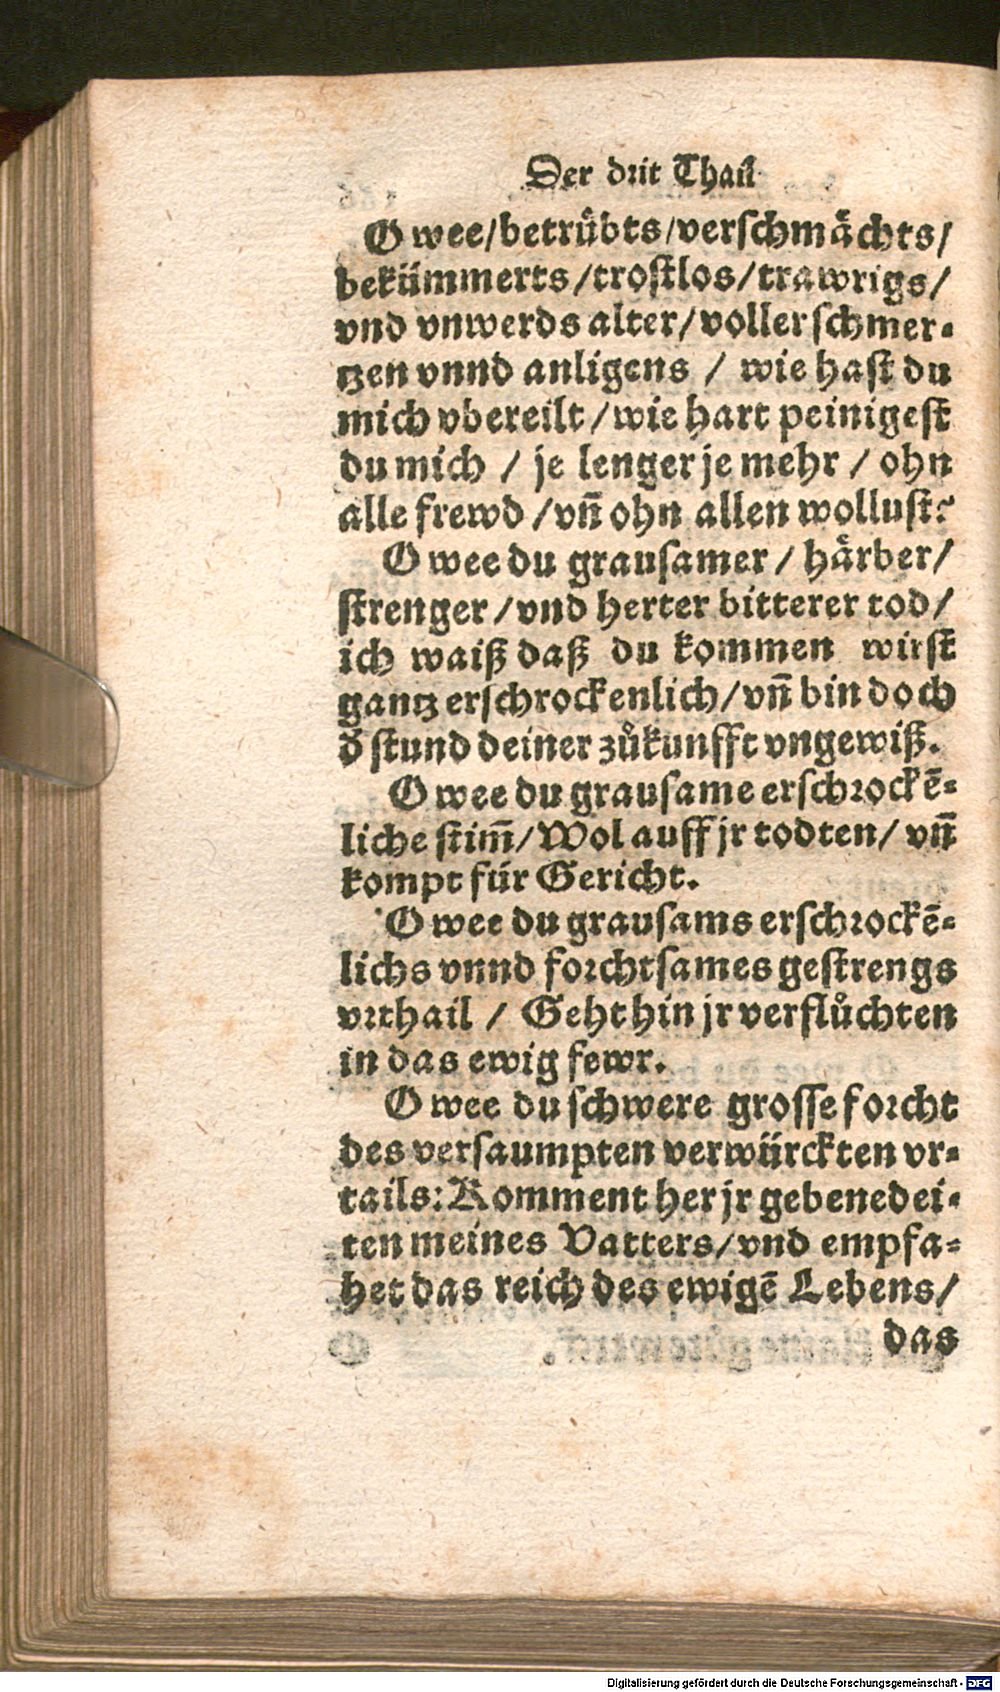 Der drit Thail
O wee/betrůbts/verschmaͤchts/
bekümmerts/trostlos/trawrigs/
vnd vnwerds alter/voller schmer-
tzen vnnd anligens / wie hast du
mich vbereilt/wie hart peinigest
du mich / je lenger je mehr / ohn
alle frewd/vn̄ ohn allen wollust?
O wee du grausamer/ haͤrber/
strenger/vnd herter bitterer tod/
ich waiß daß du kommen wirst
gantz erschrockenlich/vn̄ bin doch
đ stund deiner zůkunfft vngewiß.
O wee du grausame erschrockē-
liche stim̄/Wol auff jr todten/ vn̄
kompt für Gericht.
O wee du grausams erschrockē-
lichs vnnd forchtsames gestrengs
vrthail / Geht hin jr verflůchten
in das ewig fewr.
O wee du schwere grosse forcht
des versaumpten verwürckten vr-
tails: Komment her jr gebenedei-
ten meines Vatters/vnd empfa-
het das reich des ewigē Lebens/
das
Digitalisierung gefördert durch die Deutsche Forschungsgemeinschaft - DFG